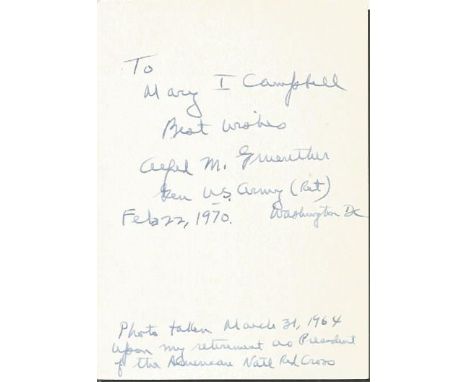 To
Mary I Campbell
Best Wishes
Alfred M. Gruenther
Gen U.S. Army (Ret)
Feb 22, 1970. Washington DC
Photo taken March 31, 1964
upon my retirement as President
of the American Natl Red Cross